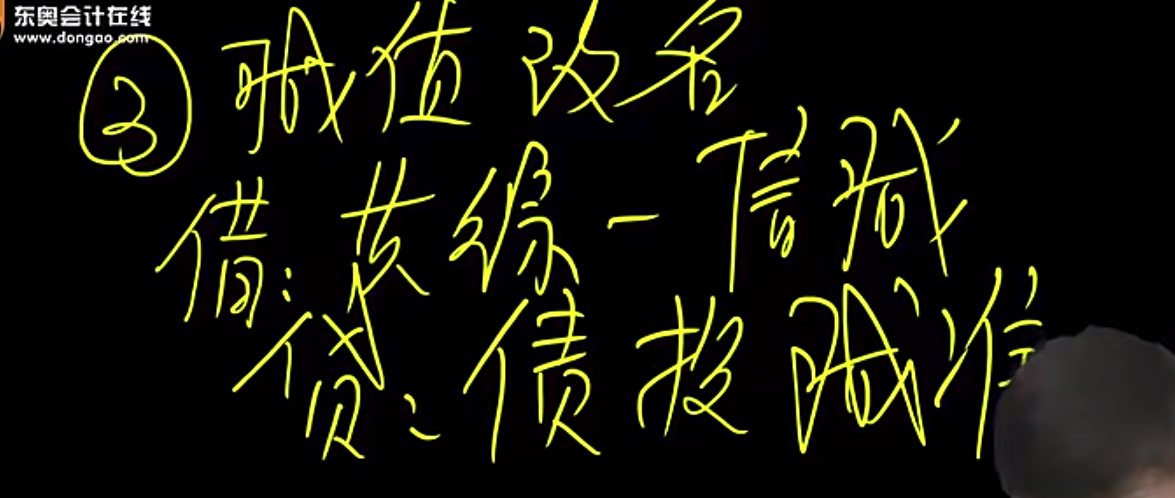 东奥会计在线
www.dongao.com
③ 减值改名
借：其综－信减
贷：债投减准